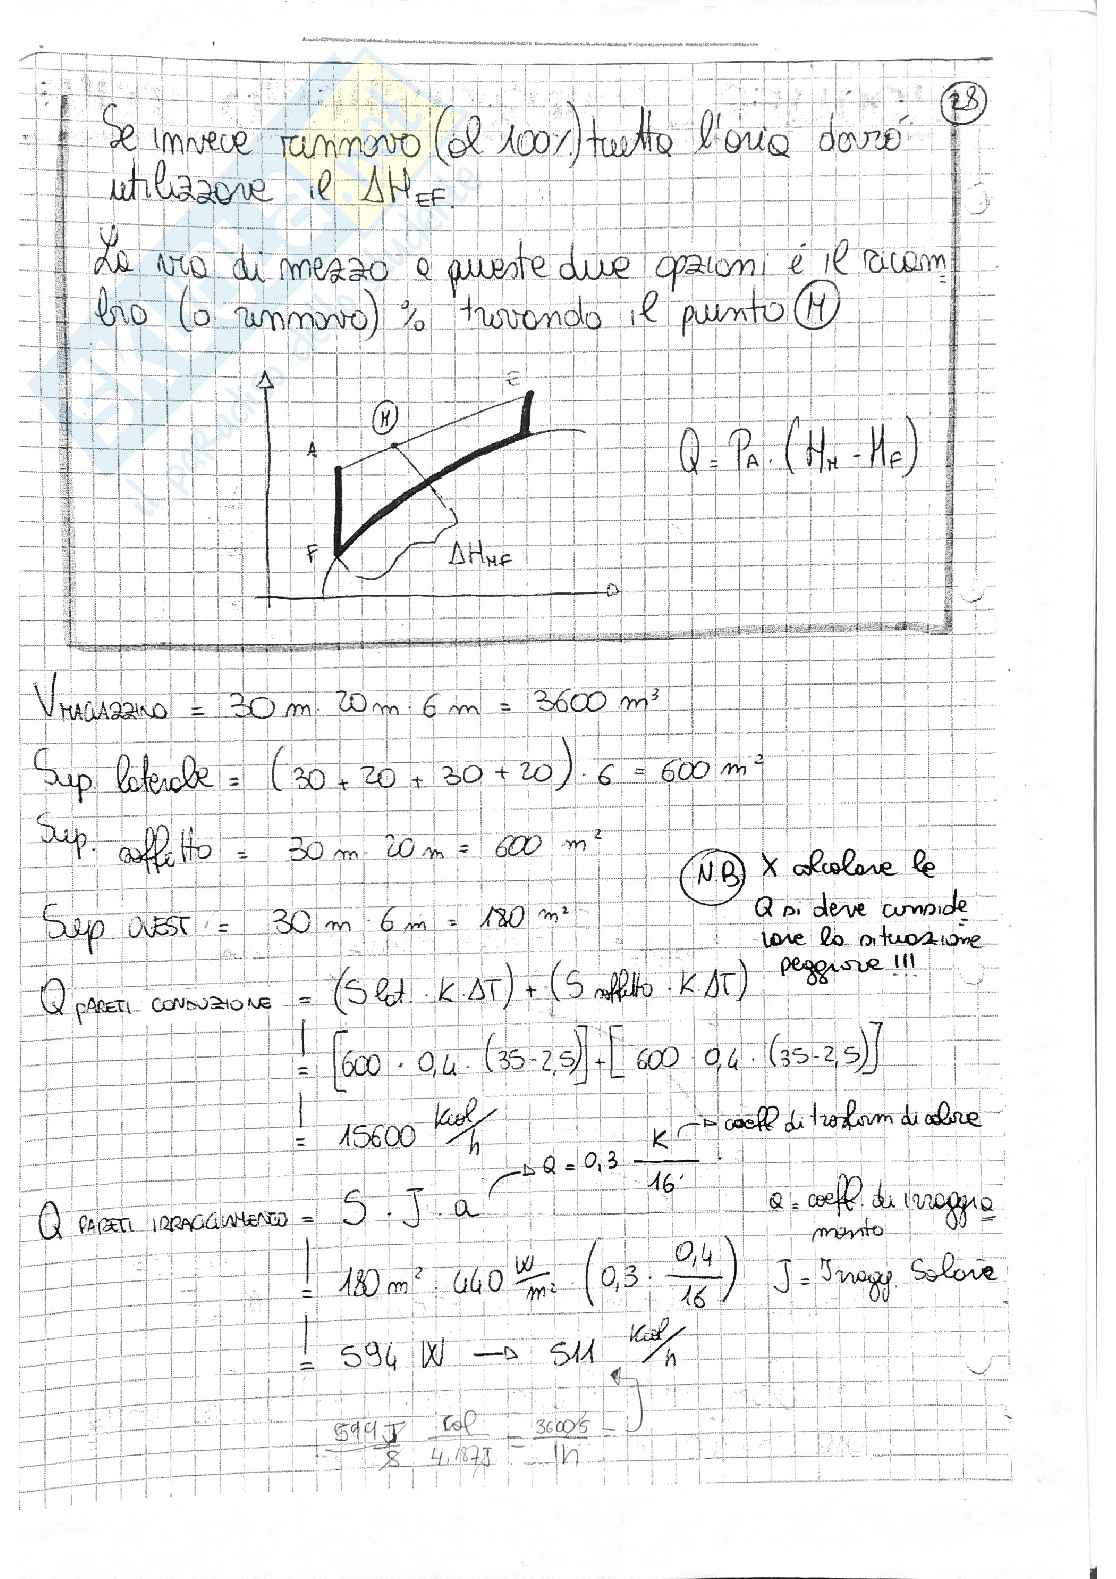 28
Se invece rinnovo (al 100%) tutta l'aria dovrò
utilizzare il ΔH_EF.
La via di mezzo a queste due opzioni é il ricam
bio (o rinnovo) % trovando il punto M
E
M
A
F
ΔH_MF
Q = P_A · (H_M - H_F)
V_MAGAZZINO = 30 m · 20 m · 6 m = 3600 m³
Sup. laterale = (30 + 20 + 30 + 20) · 6 = 600 m²
Sup. soffitto = 30 m · 20 m = 600 m²
Sup OVEST = 30 m · 6 m = 180 m²
N.B. X calcolare le
Q si deve conside
rare la situazione
peggiore !!!
Q PARETI CONDUZIONE = (S lat · K · ΔT) + (S soffitto · K ΔT)
= [600 · 0,4 · (35-2,5)] + [600 · 0,4 · (35-2,5)]
= 15600 Kcal/h
a = 0,3 K/16
coeff di trasform di calore
Q PARETI IRRAGGIAMENTO = S · J · a
a = coeff. di irraggia
mento
= 180 m² · 440 W/m² · (0,3 · 0,4/16)
J = Irragg. Solare
= 594 W → 511 Kcal/h
594 J/s cal/4,187J = 3600s/1h =